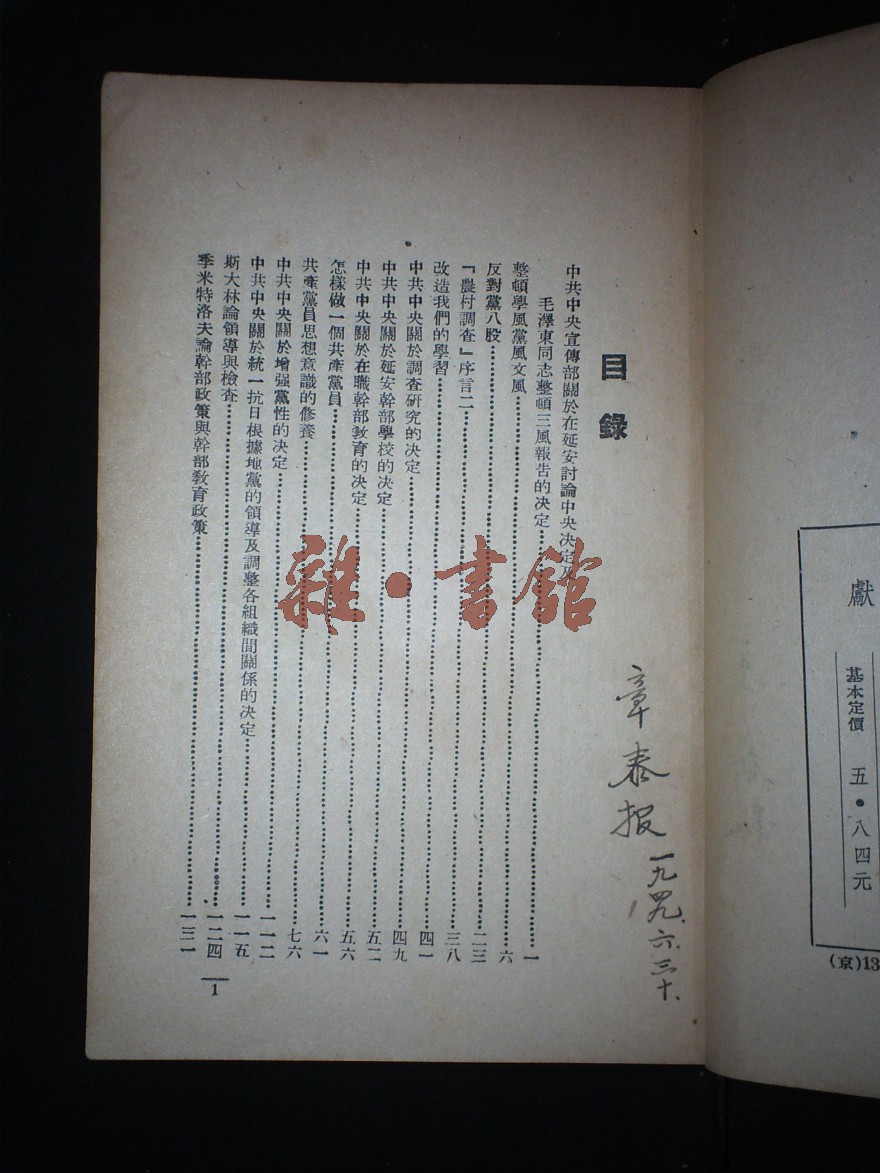 獻
基本定價 五・八四元
(京)13
目錄
中共中央宣傳部關於在延安討論中央決定及
毛澤東同志整頓三風報告的決定…………一
整頓學風黨風文風…………六
反對黨八股…………二三
『農村調查』序言二…………三八
改造我們的學習…………四一
中共中央關於調查研究的決定…………四九
中共中央關於延安幹部學校的決定…………五二
中共中央關於在職幹部教育的決定…………五六
怎樣做一個共產黨員…………六一
共產黨員思想意識的修養…………七六
中共中央關於增強黨性的決定…………一一二
中共中央關於統一抗日根據地黨的領導及調整各組織間關係的決定…………一一五
斯大林論領導與檢查…………一二四
季米特洛夫論幹部政策與幹部教育政策…………一三一
1
章泰报
一九四九.六.三十.
雜・書館